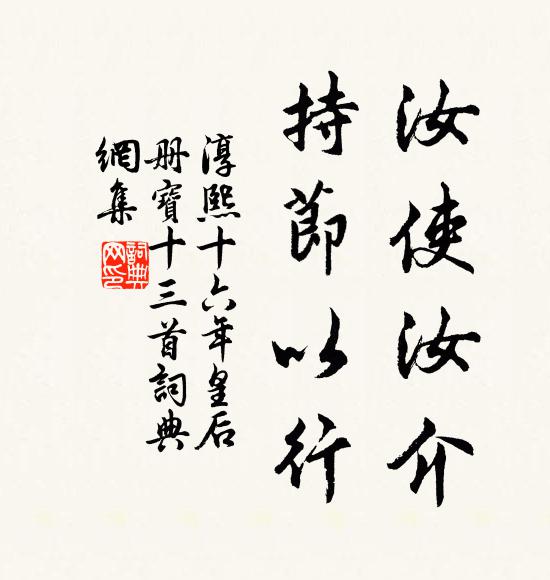 汝使汝介
持節以行
淳熙十六年皇后
册寶十三首詞典
網集
詞典網印